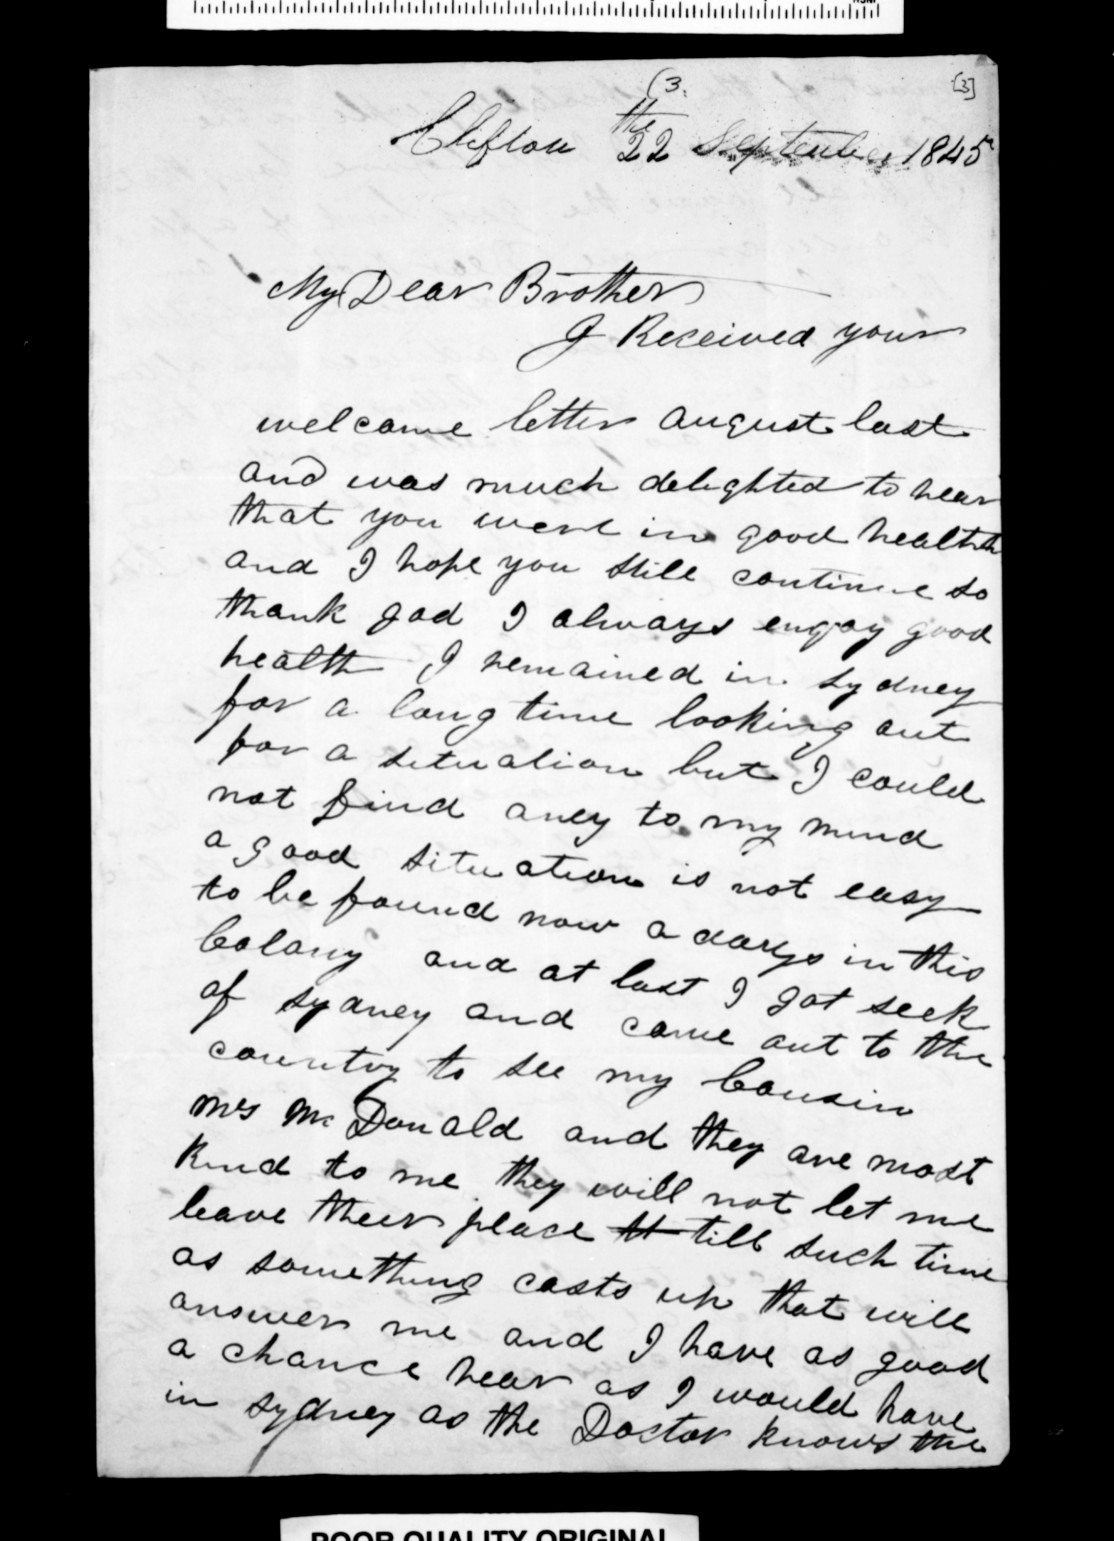 (3.
[3]
Clifton the 22 September 1845
My Dear Brother
I Received your
welcome letter august last
and was much delighted to hear
that you were in good health
and I hope you still continue so
thank god I always engoy good
health I remained in sydney
for a long time looking out
for a situation but I could
not find aney to my mind
a good situation is not easy
to be found now a days in this
Colony and at last I got seek
of sydney and came out to the
country to see my Cousin
mrs McDonald and they are most
kind to me they will not let me
leave their place tt till such time
as something casts up that will
answer me and I have as good
a chance hear as I would have
in sydney as the Doctor knows the
POOR QUALITY ORIGINAL